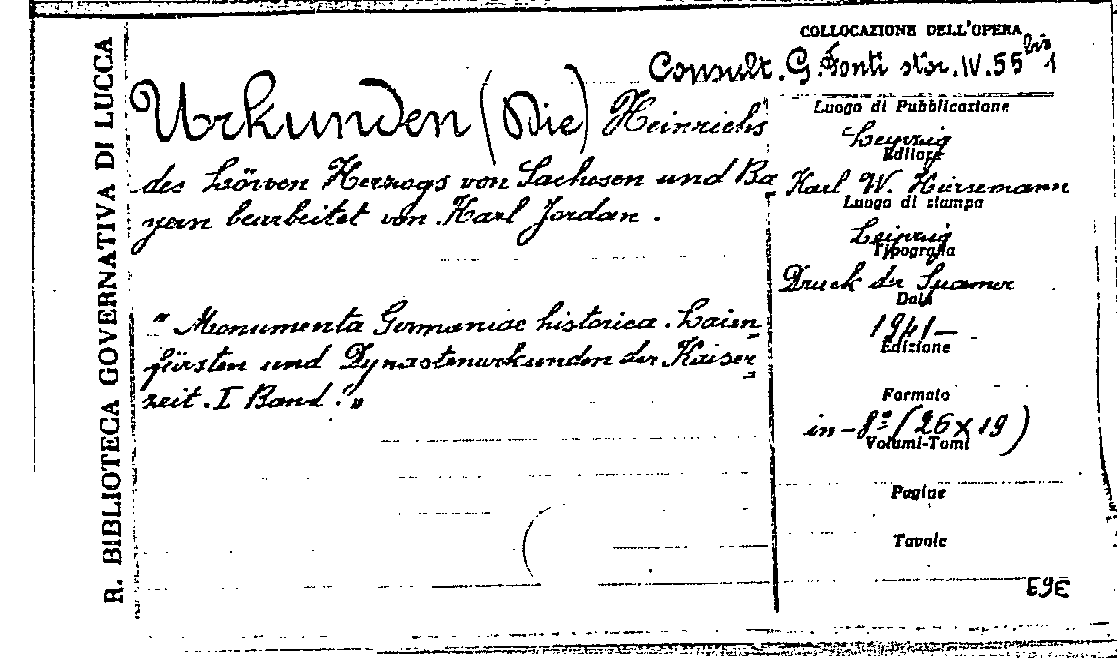 R. BIBLIOTECA GOVERNATIVA DI LUCCA
COLLOCAZIONE DELL'OPERA
Consult. G. Fonti stor. IV. 55 bis 1
Urkunden (Die) Heinrichs
des Löwen Herzogs von Sachsen und Ba
yern bearbeitet von Karl Jordan.
"Monumenta Germaniae historica. Laien-
fürsten und Dynastenurkunden der Kaiser-
zeit. I Band."
Luogo di Pubblicazione
Leipzig
Editore
Karl W. Hiersemann
Luogo di stampa
Leipzig
Tipografia
Druck der Spamer
Data
1941-
Edizione
Formato
in-8º (26 x 19)
Volumi-Tomi
Pagine
Tavole